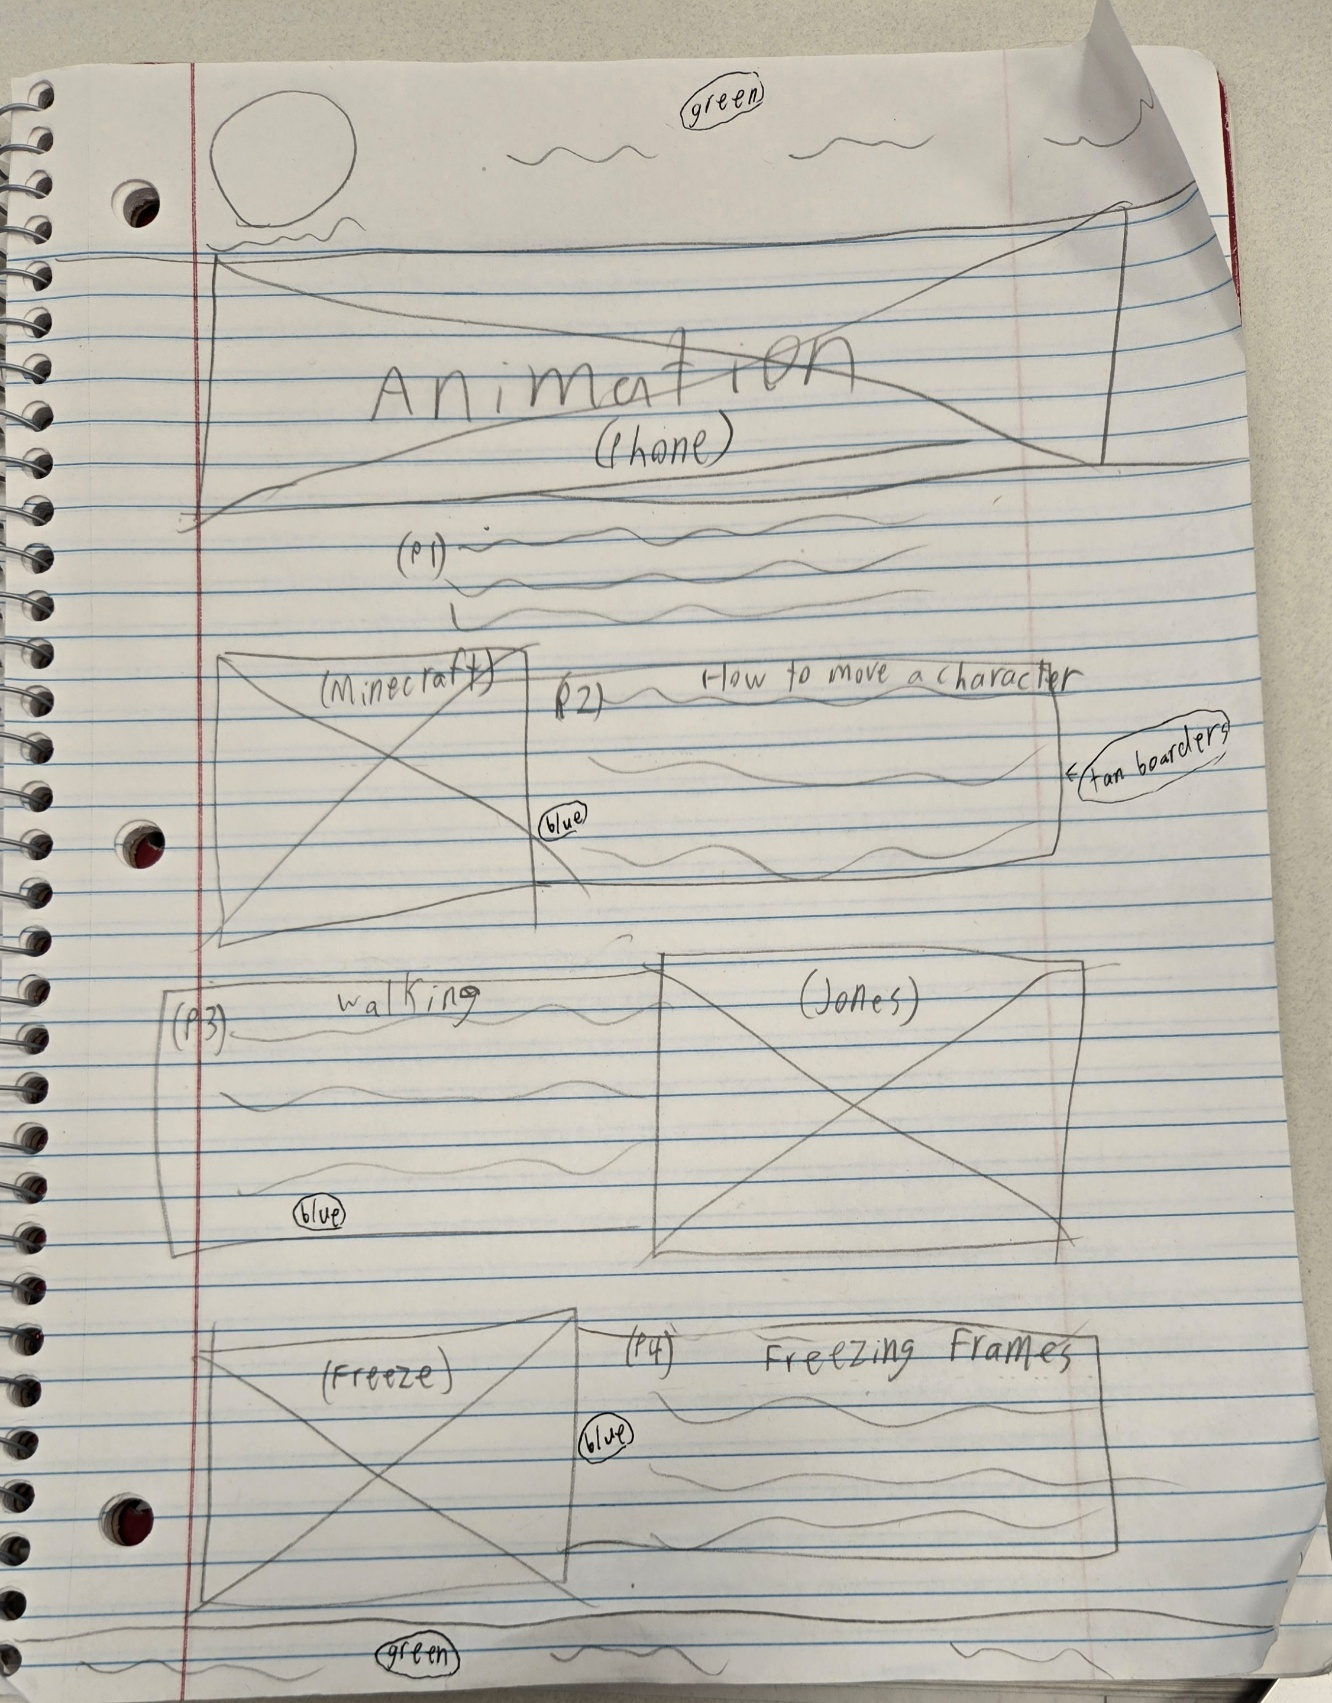 green
Animation
(Phone)
(P1)
(Minecraft)
(P2) How to move a character
tan boarders
blue
(P3) walking
(Jones)
blue
(Freeze)
(P4) Freezing Frames
blue
green